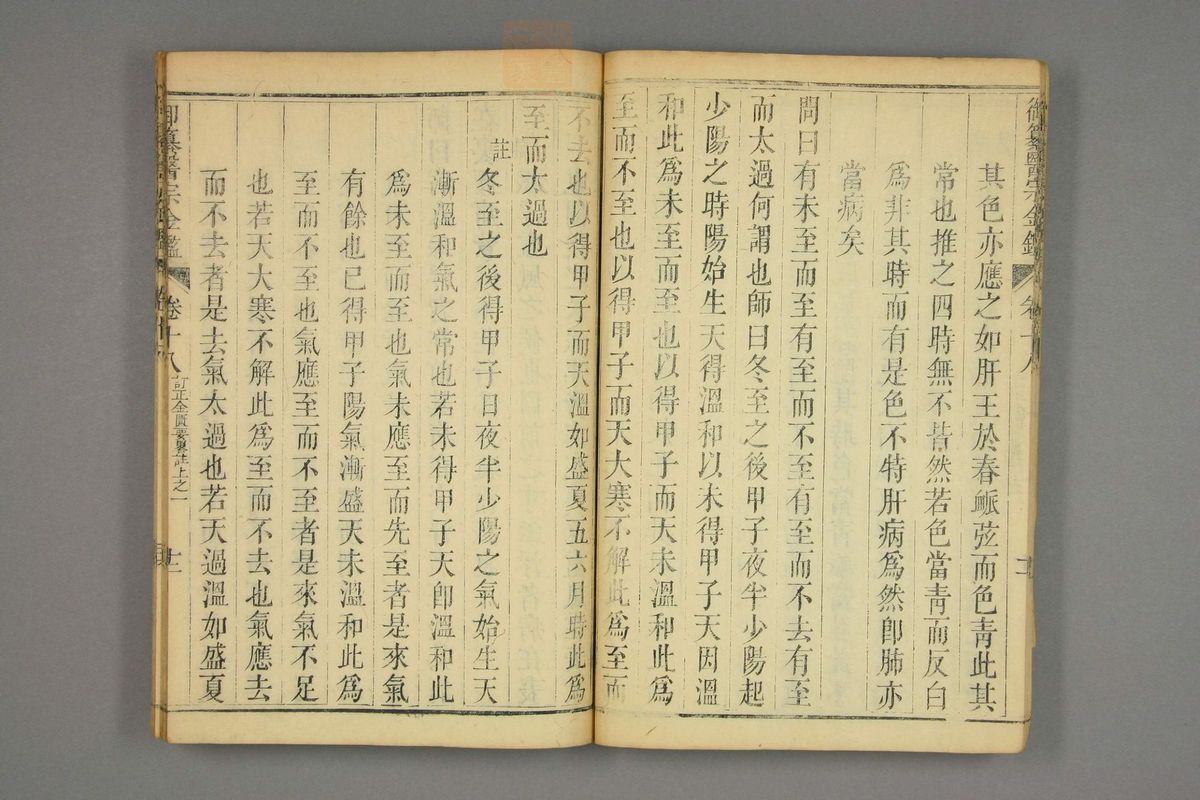 其色亦應之如肝王於春脈弦而色青此其
常也推之四時無不皆然若色當青而反白
為非其時而有是色不特肝病為然卽肺亦
當病矣
問曰有未至而至有至而不至有至而不去有至
而太過何謂也師曰冬至之後甲子夜半少陽起
少陽之時陽始生天得溫和以未得甲子天因溫
和此為未至而至也以得甲子而天未溫和此為
至而不至也以得甲子而天大寒不解此為至而
不去也以得甲子而天溫如盛夏五六月時此為
至而太過也
註冬至之後得甲子日夜半少陽之氣始生天
漸溫和氣之常也若未得甲子天卽溫和此
為未至而至也氣未應至而先至者是來氣
有餘也已得甲子陽氣漸盛天未溫和此為
至而不至也氣應至而不至者是來氣不足
也若天大寒不解此為至而不去也氣應去
而不去者是去氣太過也若天過溫如盛夏
御纂醫宗金鑑
卷十八
訂正金匱要畧註上之一
十二